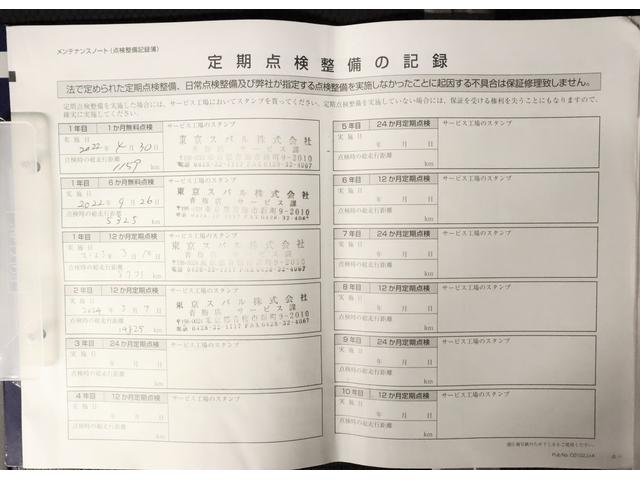 メンテナンスノート(点検整備記録簿)
定期点検整備の記録
法で定められた定期点検整備、日常点検及び弊社が指定する点検整備を実施しなかったことに起因する不具合は保証修理致しません。
定期点検を実施した場合には、サービス工場においてスタンプを貰ってください。定期点検整備を実施していない場合には、保証を受ける権利を失うことにもなりますので、
確実に実施してください。
1年目 1か月無料点検 サービス工場のスタンプ
実施日
2022年4月30日
点検時の総走行距離
1159 km
東京スバル株式会社
青梅店 サービス課
1年目 6か月無料点検 サービス工場のスタンプ
実施日
2022年9月26日
点検時の総走行距離
5325 km
東京スバル株式会社
青梅店 サービス課
1年目 12か月定期点検 サービス工場のスタンプ
実施日
年 月 日
点検時の総走行距離
km
東京スバル株式会社
青梅店 サービス課
2年目 12か月定期点検 サービス工場のスタンプ
実施日
2024年3月 日
点検時の総走行距離
14825 km
東京スバル株式会社
青梅店 サービス課
〒198-0024
東京都青梅市新町9-2010
電話 0428-32-1117 FAX 0428-32-4067
3年目 24か月定期点検 サービス工場のスタンプ
実施日
年 月 日
点検時の総走行距離
km
4年目 12か月定期点検 サービス工場のスタンプ
実施日
年 月 日
点検時の総走行距離
km
5年目 24か月定期点検 サービス工場のスタンプ
実施日
年 月 日
点検時の総走行距離
km
6年目 12か月定期点検 サービス工場のスタンプ
実施日
年 月 日
点検時の総走行距離
km
7年目 24か月定期点検 サービス工場のスタンプ
実施日
年 月 日
点検時の総走行距離
km
8年目 12か月定期点検 サービス工場のスタンプ
実施日
年 月 日
点検時の総走行距離
km
9年目 24か月定期点検 サービス工場のスタンプ
実施日
年 月 日
点検時の総走行距離
km
10年目 12か月定期点検 サービス工場のスタンプ
実施日
年 月 日
点検時の総走行距離
km